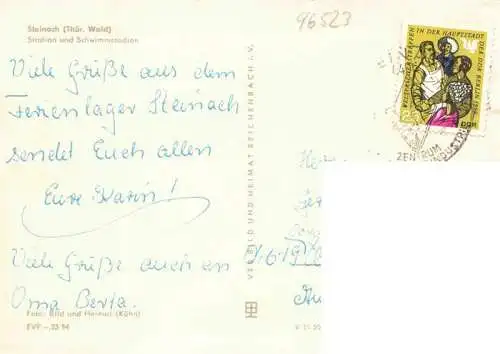 96523
Steinach (Thür. Wald)
Stadion und Schwimmstadion
Viele Grüße aus dem
Ferienlager Steinach
sendet Euch allen
Eure Karin!
Viele Grüße auch an
Oma Berta.
Foto: Bild und Heimat (Kühn)
EVP –.25 M
VERLAG BILD UND HEIMAT REICHENBACH I. V.
V 11 50
IN DER HAUPTSTADT
DER DDR BERLIN
DDR
ZENTRUM